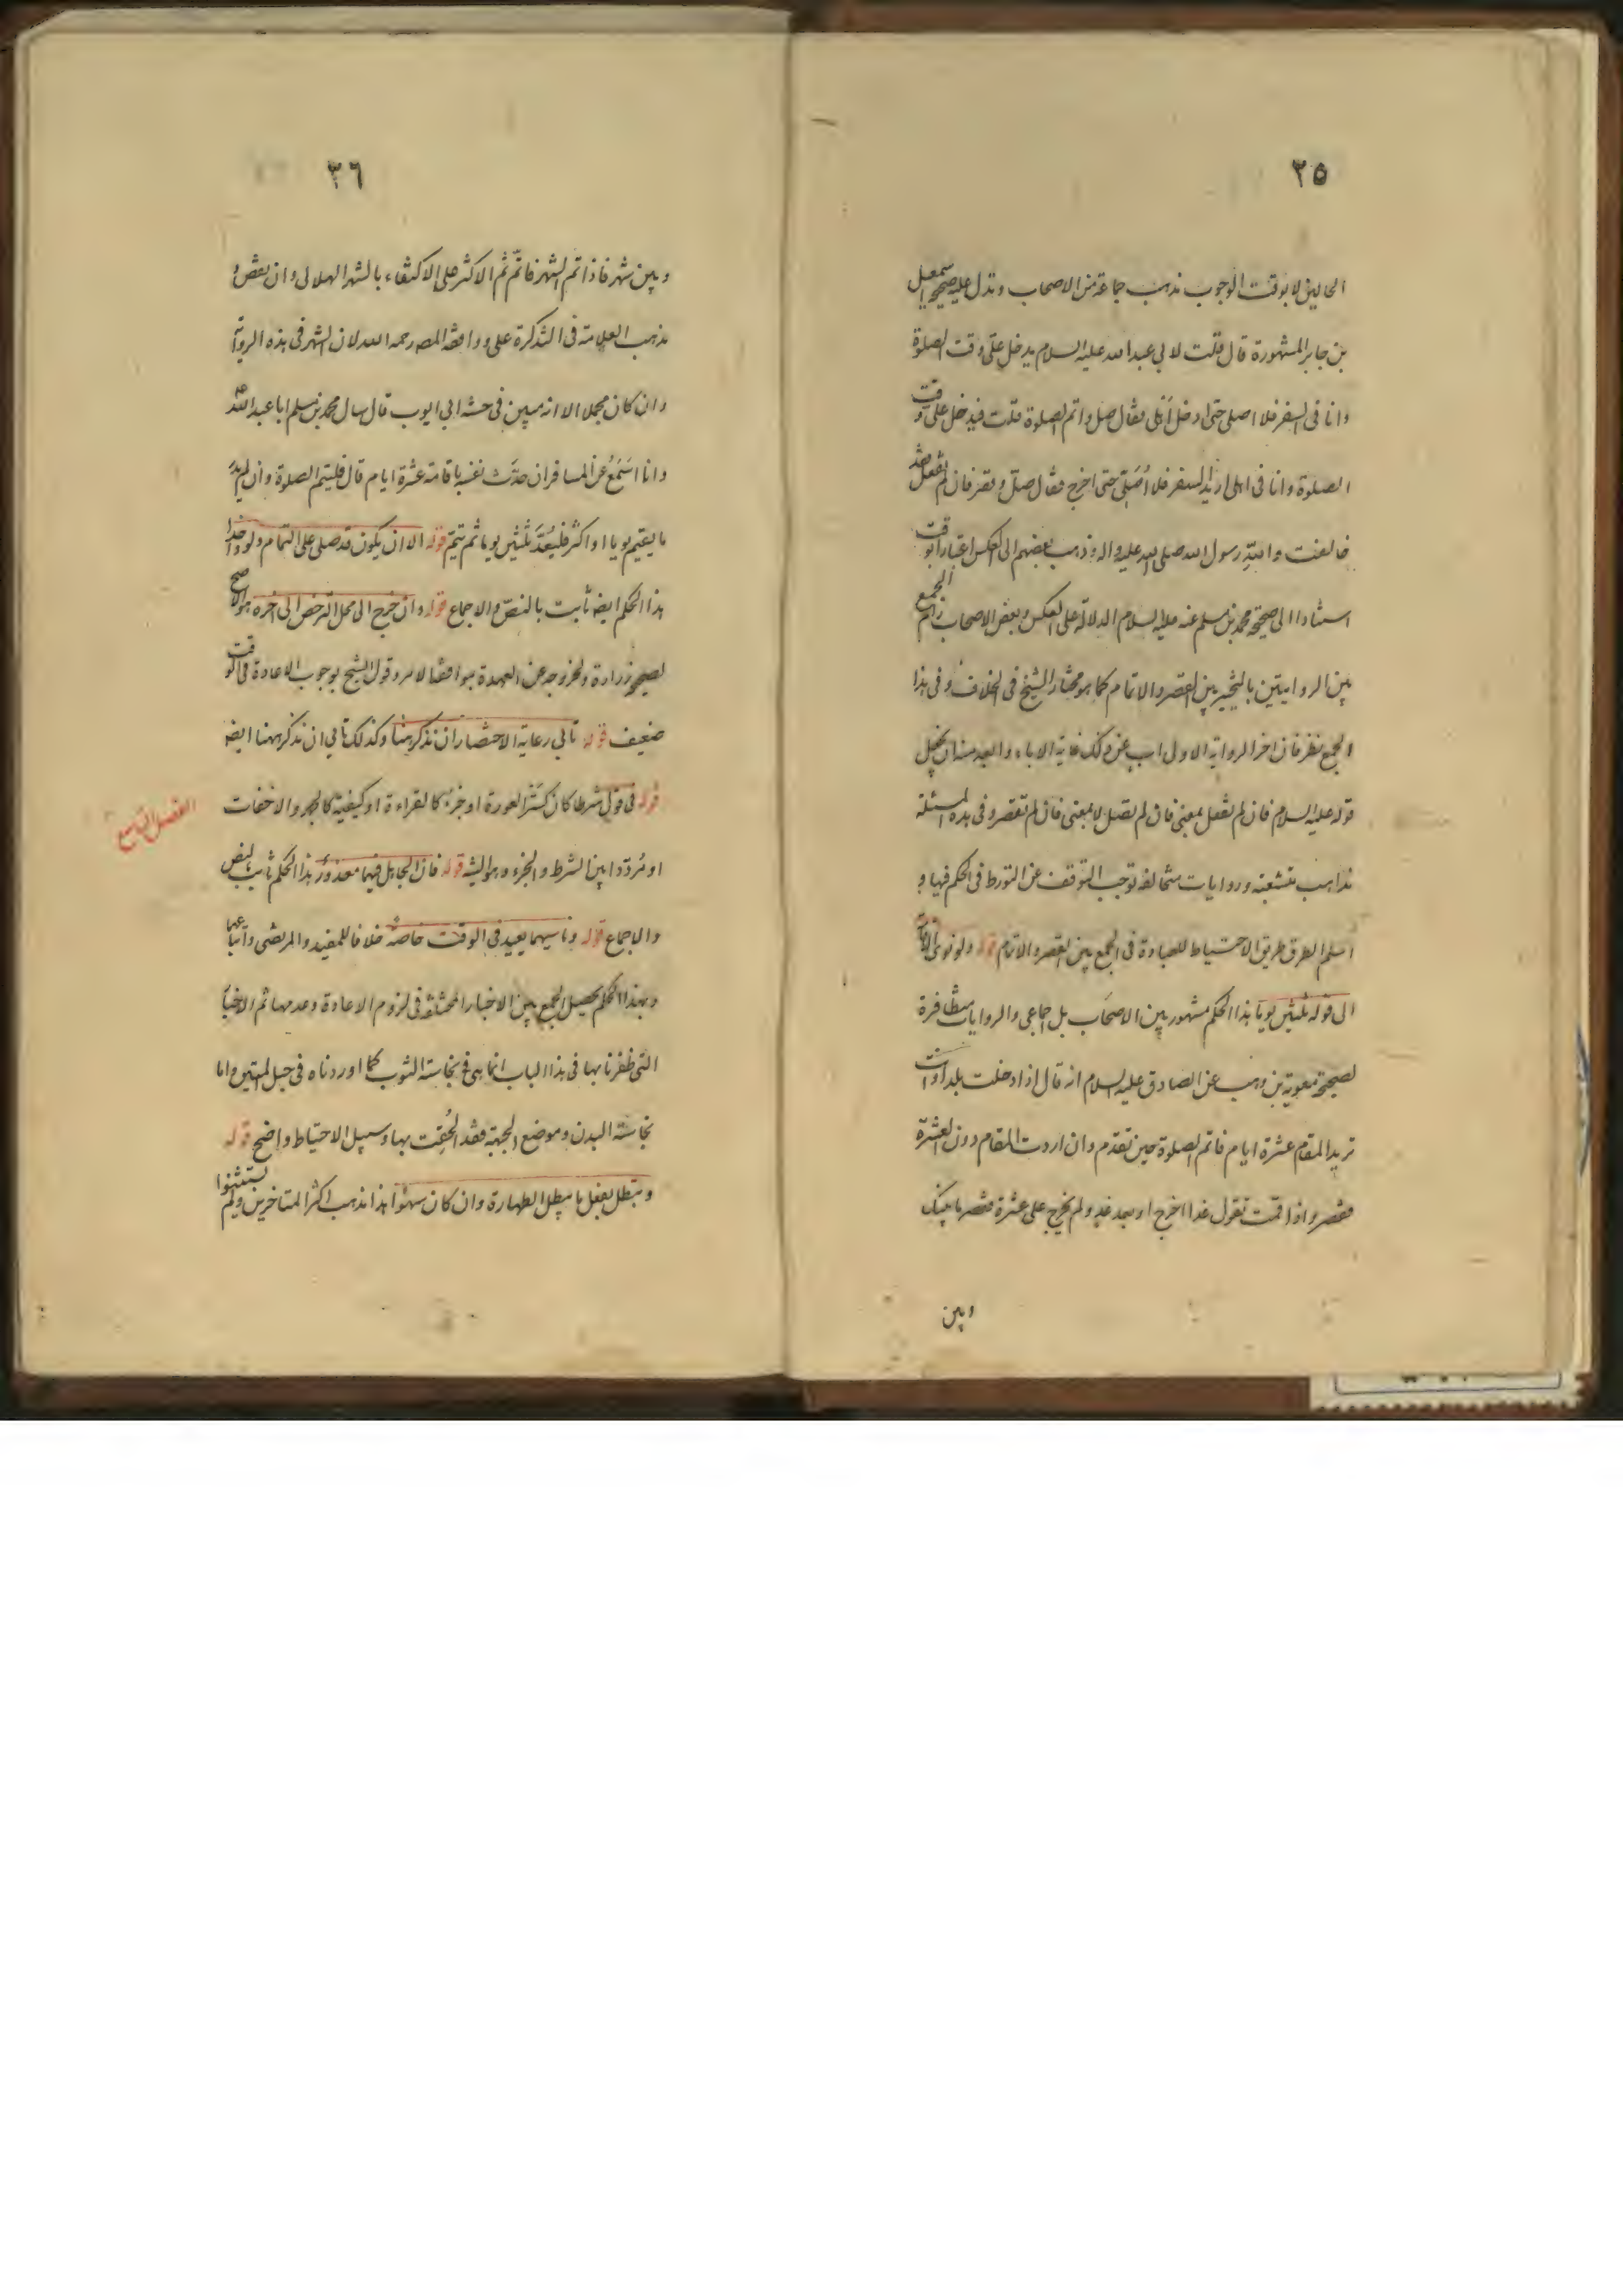 ٣٥
الحالين لا بوقت الوجوب مذهب جماعة من الاصحاب وتدل عليه صحيحة اسمعيل
بن جابر المشهورة قال قلت لابي عبد الله عليه السلام يدخل علي وقت الصلوة
وانا في السفر فلا اصلي حتى ادخل اهلي فقال صل واتم الصلوة قلت فيدخل علي وقت
الصلوة وانا في اهلي اريد السفر فلا اُصَلّي حتى اخرج فقال صلّ وقصر فان لم تفعل فقد
خالفت والله رسول الله صلى الله عليه واله وذهب بعضهم الى العكس اعتبارا بوقت
استنادا الى صحيحة محمد بن مسلم عنه عليه السلام الدالة على العكس وبعض الاصحاب رام الجمع
بين الروايتين بالتخيير بين القصر والاتمام كما هو مختار الشيخ في الخلاف وفي هذا
الجمع نظر فان اخر الرواية الاولى اب عن ذلك غاية الاباء والبعد منه ان يجعل
قوله عليه السلام فان لم تفعل بمعنى فان لم تصل لا بمعنى فان لم تقصر وفي هذه المسئلة
مذاهب متشعبة وروايات متخالفة توجب التوقف عن التورط في الحكم فيها و
اسلم الطرق طريق الاحتياط للعبادة في الجمع بين القصر والاتمام قوله ولو نوى الاقامة
الى قوله ثلثين يوما هذا الحكم مشهور بين الاصحَاب بل اجماعي والروايات متظافرة
لصحيحة معوية بن وهب عن الصادق عليه السلام انه قال اذا دخلت بلدا وانت
تريد المقام عشرة ايام فاتم الصلوة حين تقدم وان اردت المقام دون العشرة
فقصر واذا قمت تقول غدا اخرج او بعد غد ولم تخرج على عشرة فقصر ما بينك
وبين
٣٦
وبين شهر فاذا تم الشهر فاتم ثم الاكثر على الاكتفاء بالشهر الهلالي وان نقص و
مذهب العلامة في التذكرة على ووافقه المصـ رحمه الله لان الشهر في هذه الرواية
وان كان مجملا الا انه مبين في حسنه ابي ايوب قال سال محمد بن مسلم ابا عبد الله
وانا اَسْمَعُ عن المسافر ان حدَّث نفسه باقامة عشرة ايام قال فليتم الصلوة وان لم يدر
ما يقيم يوما او اكثر فليُعدَّ ثلثين يوما ثم يتمّ قوله الا ان يكون قد صلى على التمام ولو واحدا
هذا الحكم ايضـ ثابت بالنصّ والاجماع قوله وان خرج الى محل الترخص الى اخره هو الاصح
لصحيحة زرارة ولخروجه عن العهدة بموافقة الامر وقول الشيخ بوجوب الاعادة في الوقت
ضعيف قوله تابى رعاية الاختصار ان نذكر هنا وكذلك تابى ان نذكر ههنا ايضـ
الفصل التاسع
قوله في قول شرطا كان كستر العورة او جزءً كالقراءة او كيفية كالجهر والاخفات
او مُردّدا بين الشرط والجزء وهو النية قوله فان الجاهل فيهما معذورٌ هذا الحكم ثابت بالنص
والاجماع قوله وناسيهما يعيد في الوقت خاصةً خلافا للمفيد والمرتضى واتباعهما
وبهذا الحكم يحصل الجمع بين الاخبار المختلفة في لزوم الاعادة وعدمها ثم الاخبار
التي ظفرنا بها في هذا الباب انما هي في نجاسة الثوب كما اوردناه في حبل المتين واما
نجاسة البدن وموضع الجبهة فقد اُلحقت بها وسبيل الاحتياط واضح قوله
وتبطل بفعل ما يبطل الطهارة وان كان سهوًا هذا مذهب اكثر المتاخرين ولم يستثنوا